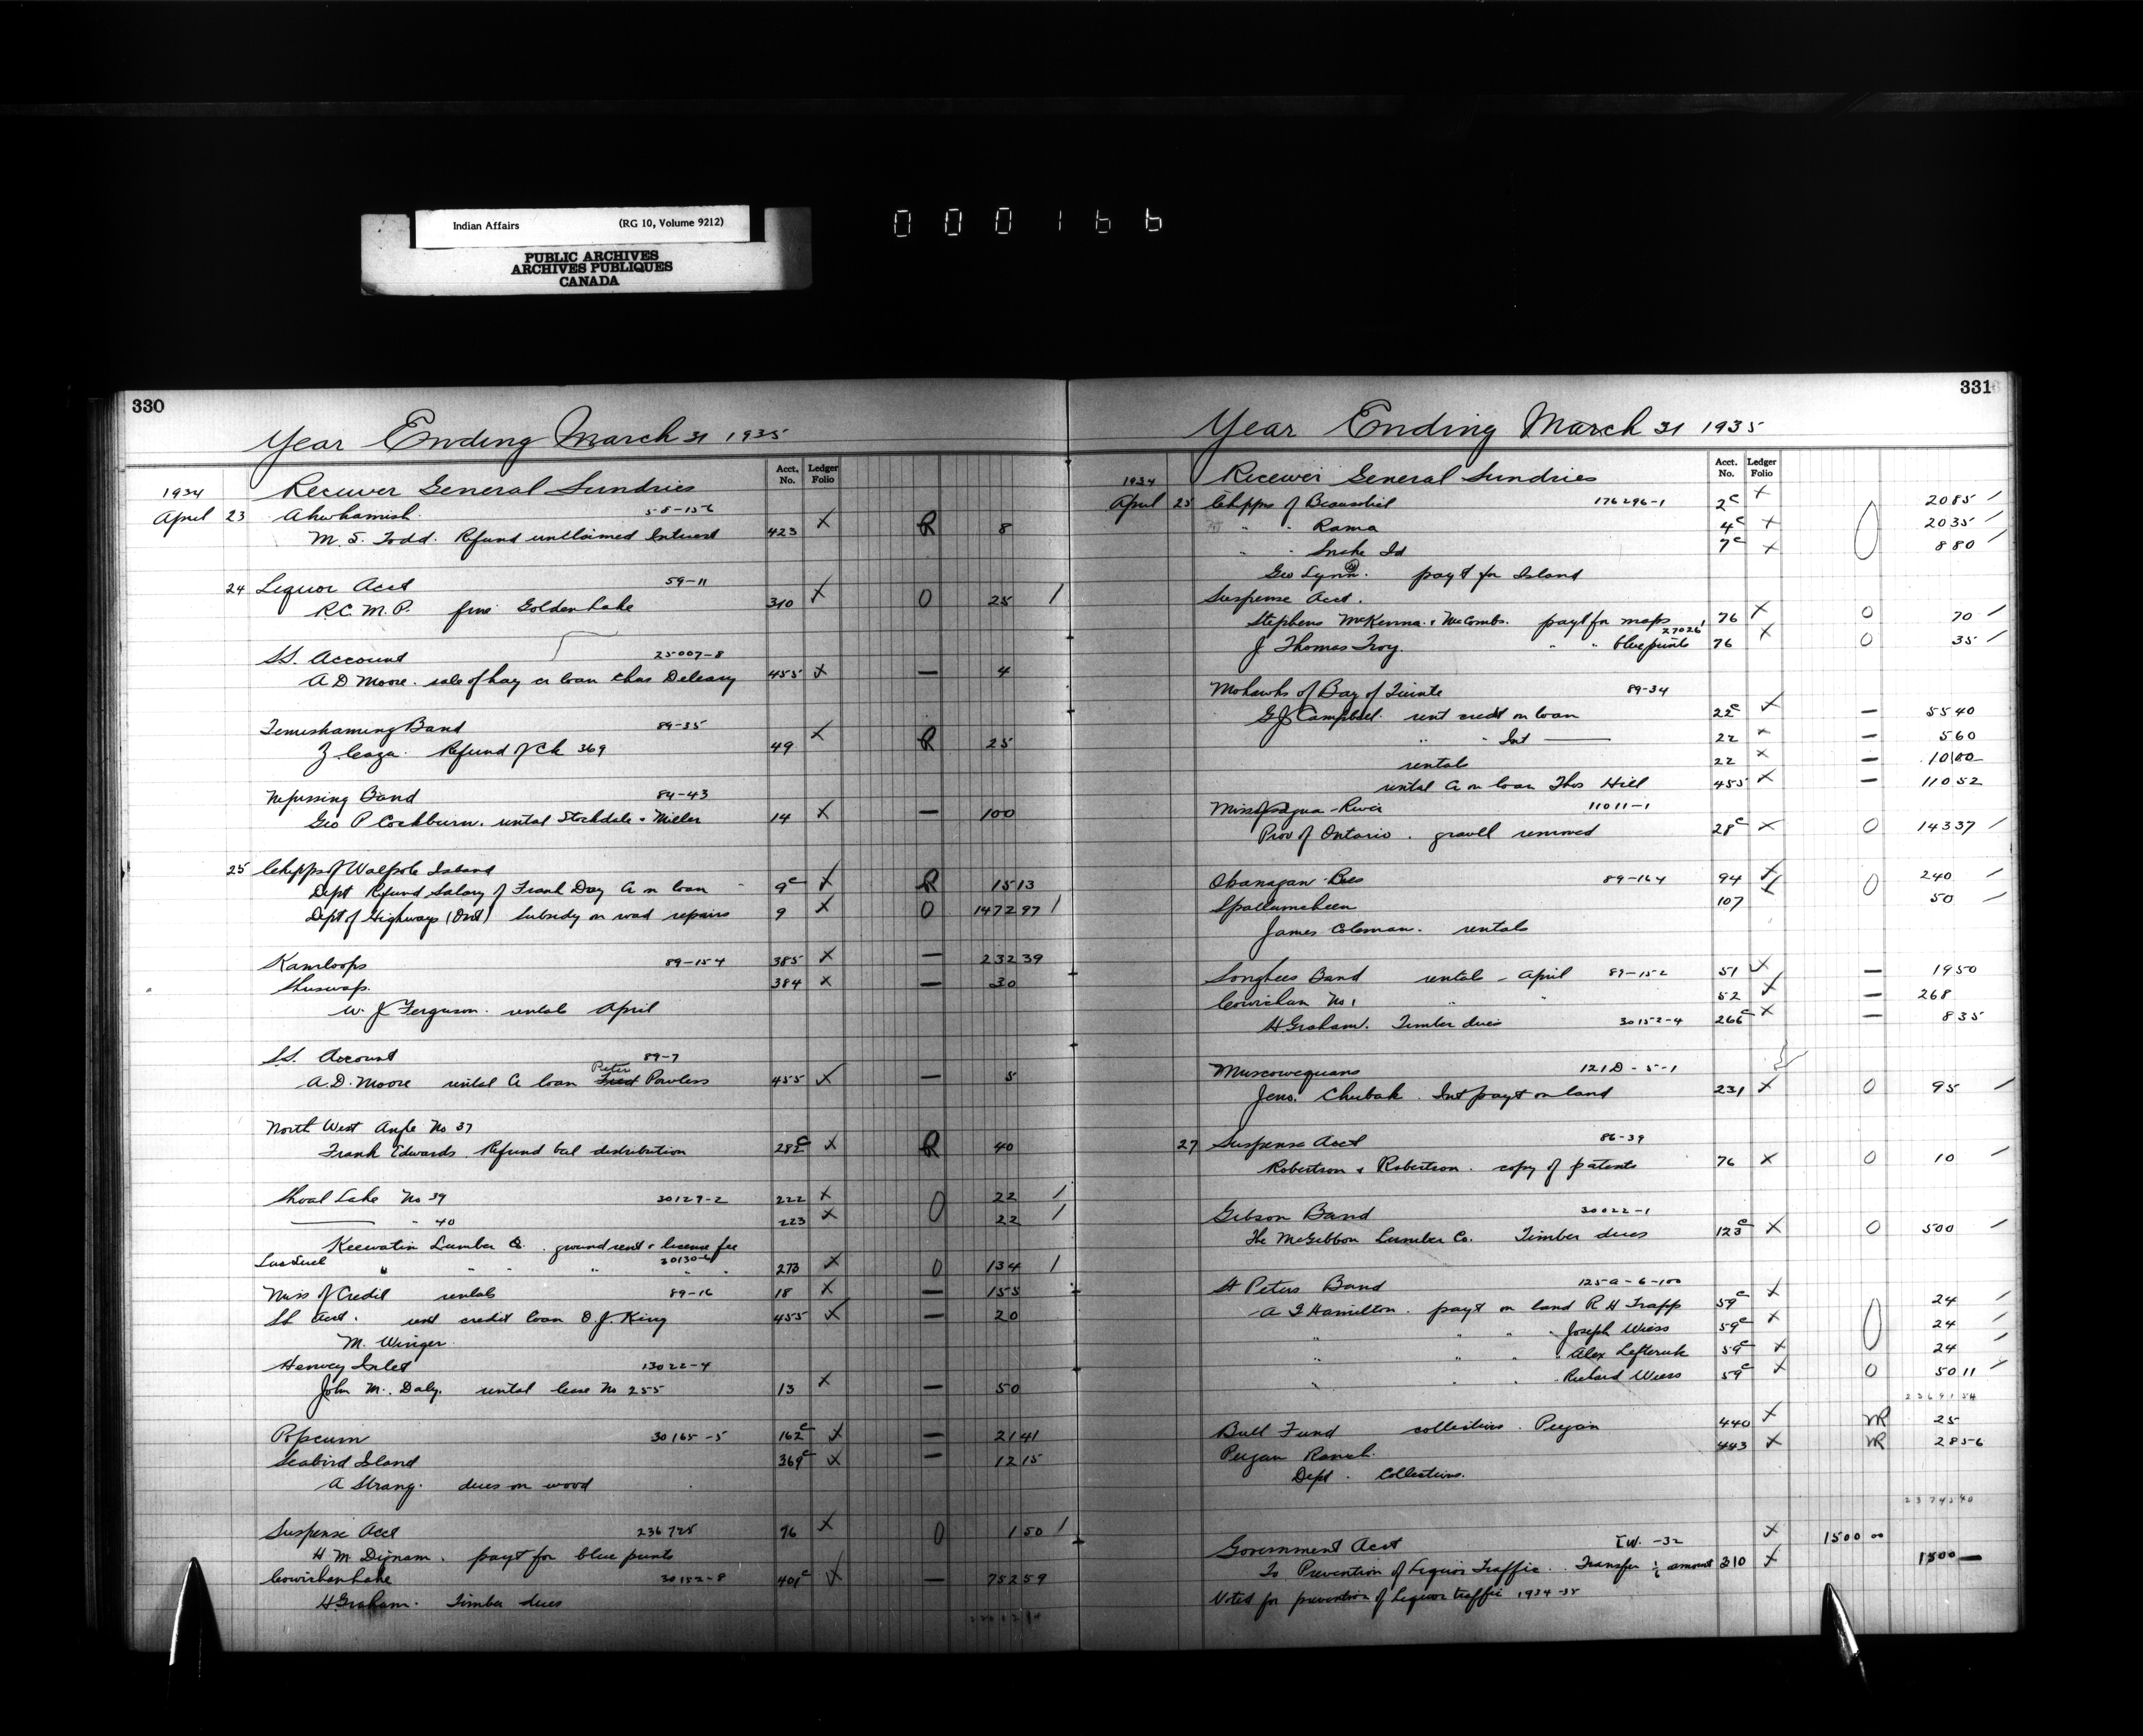 Indian Affairs (RG 10, Volume 9212)
PUBLIC ARCHIVES
ARCHIVES PUBLIQUES
CANADA
000166
330
Year Ending March 31 1935
Acct. No. Ledger Folio
1934 Receiver General Sundries
April 23 Ahwhamish 58-156
M. S. Todd. Refund unclaimed Interest 423 X R 8
24 Liquor Acct 59-11
R.C.M.P. fine Golden Lake 310 X O 25 /
S.S. Account 25007-8
A D Moore. sale of hay cr loan Chas Deleary 455 X — 4
Temiskaming Band 89-35
Z. Caza. Refund of Ck 369 49 X R 25
Nipissing Band 84-43
Geo P Cockburn. rental Stockdale & Miller 14 X — 100
25 Chippys of Walpole Island
Dept Refund Salary of Frank Day a on loan 9c X R 1513
Dept of Highways (Ont) Subsidy on road repairs 9 X O 147297 /
Kamloops 89-154 385 X — 23239
Shuswap. 384 X — 30
W. J. Ferguson. rentals April
S.S. Account 89-7
Peter
A.D. Moore rental a loan Fred Powless 455 X — 5
North West Angle No 37
Frank Edwards. Refund bal distribution 282c X R 40
Shoal Lake No 39 30127-2 222 X O 22 /
" 40 223 X 22 /
Keewatin Lumber Co. ground rent & license fee
Lac Seul " " " 30130-6 273 X O 134 /
Miss of Credit rentals 89-16 18 X — 155
SS Acct. rent credit loan O.J. King 455 X — 20
M. Winger.
Henvey Inlet 13022-4
John M. Daly. rental lease No 255 13 X — 50
Popcum 30165-5 162c X — 2141
Seabird Island 369c X — 1215
A Strang. dues on wood
Suspense Acct 236725 76 X O 150 /
H. M. Dignam. payt for blue prints
Cowichan Lake 30152-8 401c X — 75259
H Graham. Timber dues
331
Year Ending March 31 1935
Acct. No. Ledger Folio
1934 Receiver General Sundries
April 25 Chippys of Beausoleil 176296-1 2c X 2085 /
" " Rama 4c X O 2035 /
" " Snake Id 7c X 880 /
Geo Lynn. payt for Island
Suspense Acct.
Stephens McKenna & McCombs. payt for maps 76 X O 70 /
27026
J Thomas Troy. " " blueprints 76 X O 35 /
Mohawks of Bay of Quinte 89-34
G J Campbell. rent credit on loan 22c X — 5540
" " Int 22 X — 560
rentals 22 X — 10100
rental a on loan Thos Hill 455 X — 11052
Mississagua River 11011-1
Prov of Ontario. gravell removed 28c X O 14337 /
Okanagan Res 89-164 94 X O 240 /
Spallumcheen 107 X 50 /
James Coleman. rentals
Songhees Band rentals - April 89-152 51 X — 1950
Cowichan No 1 " " 52 X — 268
H Graham. Timber dues 30152-4 266c X — 835
Muscowequans 121D-5-1
Jens. Chubak. Int payt on land 231 X O 95 /
27 Suspense Acct 86-39
Robertson & Robertson. copy of patents 76 X O 10 /
Gibson Band 30022-1
The McGibbon Lumber Co. Timber dues 123c X O 500 /
St Peters Band 125a-6-100
A G Hamilton. payt on land R H Trapp 59c X 24 /
" " " Joseph Wiess 59c X O 24 /
" " " Alex Lefteruk 59c X 24 /
" " " Richard Wiess 59c X O 5011 /
2369154
Bull Fund collections. Peigan 440 X VR 25
Peigan Ranch. 443 X VR 2856
Dept. Collections.
2374540
Government Acct IW.-32 X 1500 00
To Prevention of Liquor Traffic. Transfer ½ amount 310 X 1500 —
Voted for prevention of Liquor traffic 1934-35